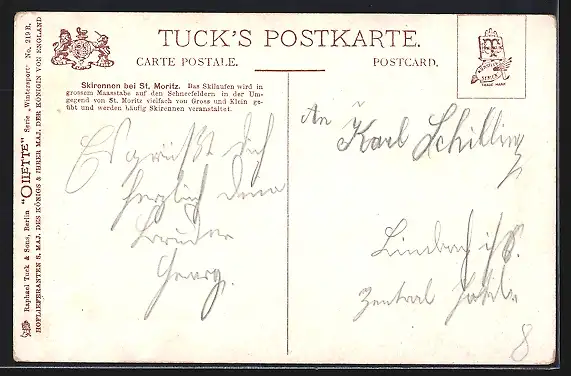 TUCK'S POSTKARTE.
CARTE POSTALE.
POSTCARD.
Skironnen bei St. Moritz. Das Skilaufen wird in
grossem Maasstabe auf den Schneefeldern in der Um-
gegend von St. Moritz vielfach von Gross und Klein ge-
übt und werden häufig Skirennen veranstaltet.
Es grüßt dich
herzlich dein
Bruder
Georg.
An
Karl Schilling
Lindach
Zentral Hotel
8
Raphael Tuck & Sons, Berlin "OILETTE" Serie „Wintersport" No. 219 R.
HOFLIEFERANTEN S. MAJ. DES KÖNIGS & IHRER MAJ. DER KÖNIGIN VON ENGLAND